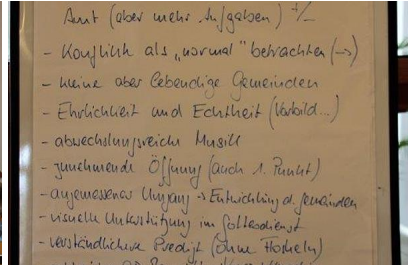 Amt (aber mehr Aufgaben) +/-
- Konflikte als „normal" betrachten (->)
- kleine aber lebendige Gemeinden
- Ehrlichkeit und Echtheit (Vorbild...)
- abwechslungsreiche Musik
- zunehmende Öffnung (auch 1. Punkt)
- angemessener Umgang -> Entwicklung d. Gemeinden
- visuelle Unterstützung im Gottesdienst
- verständlichere Predigt (ohne Floskeln)